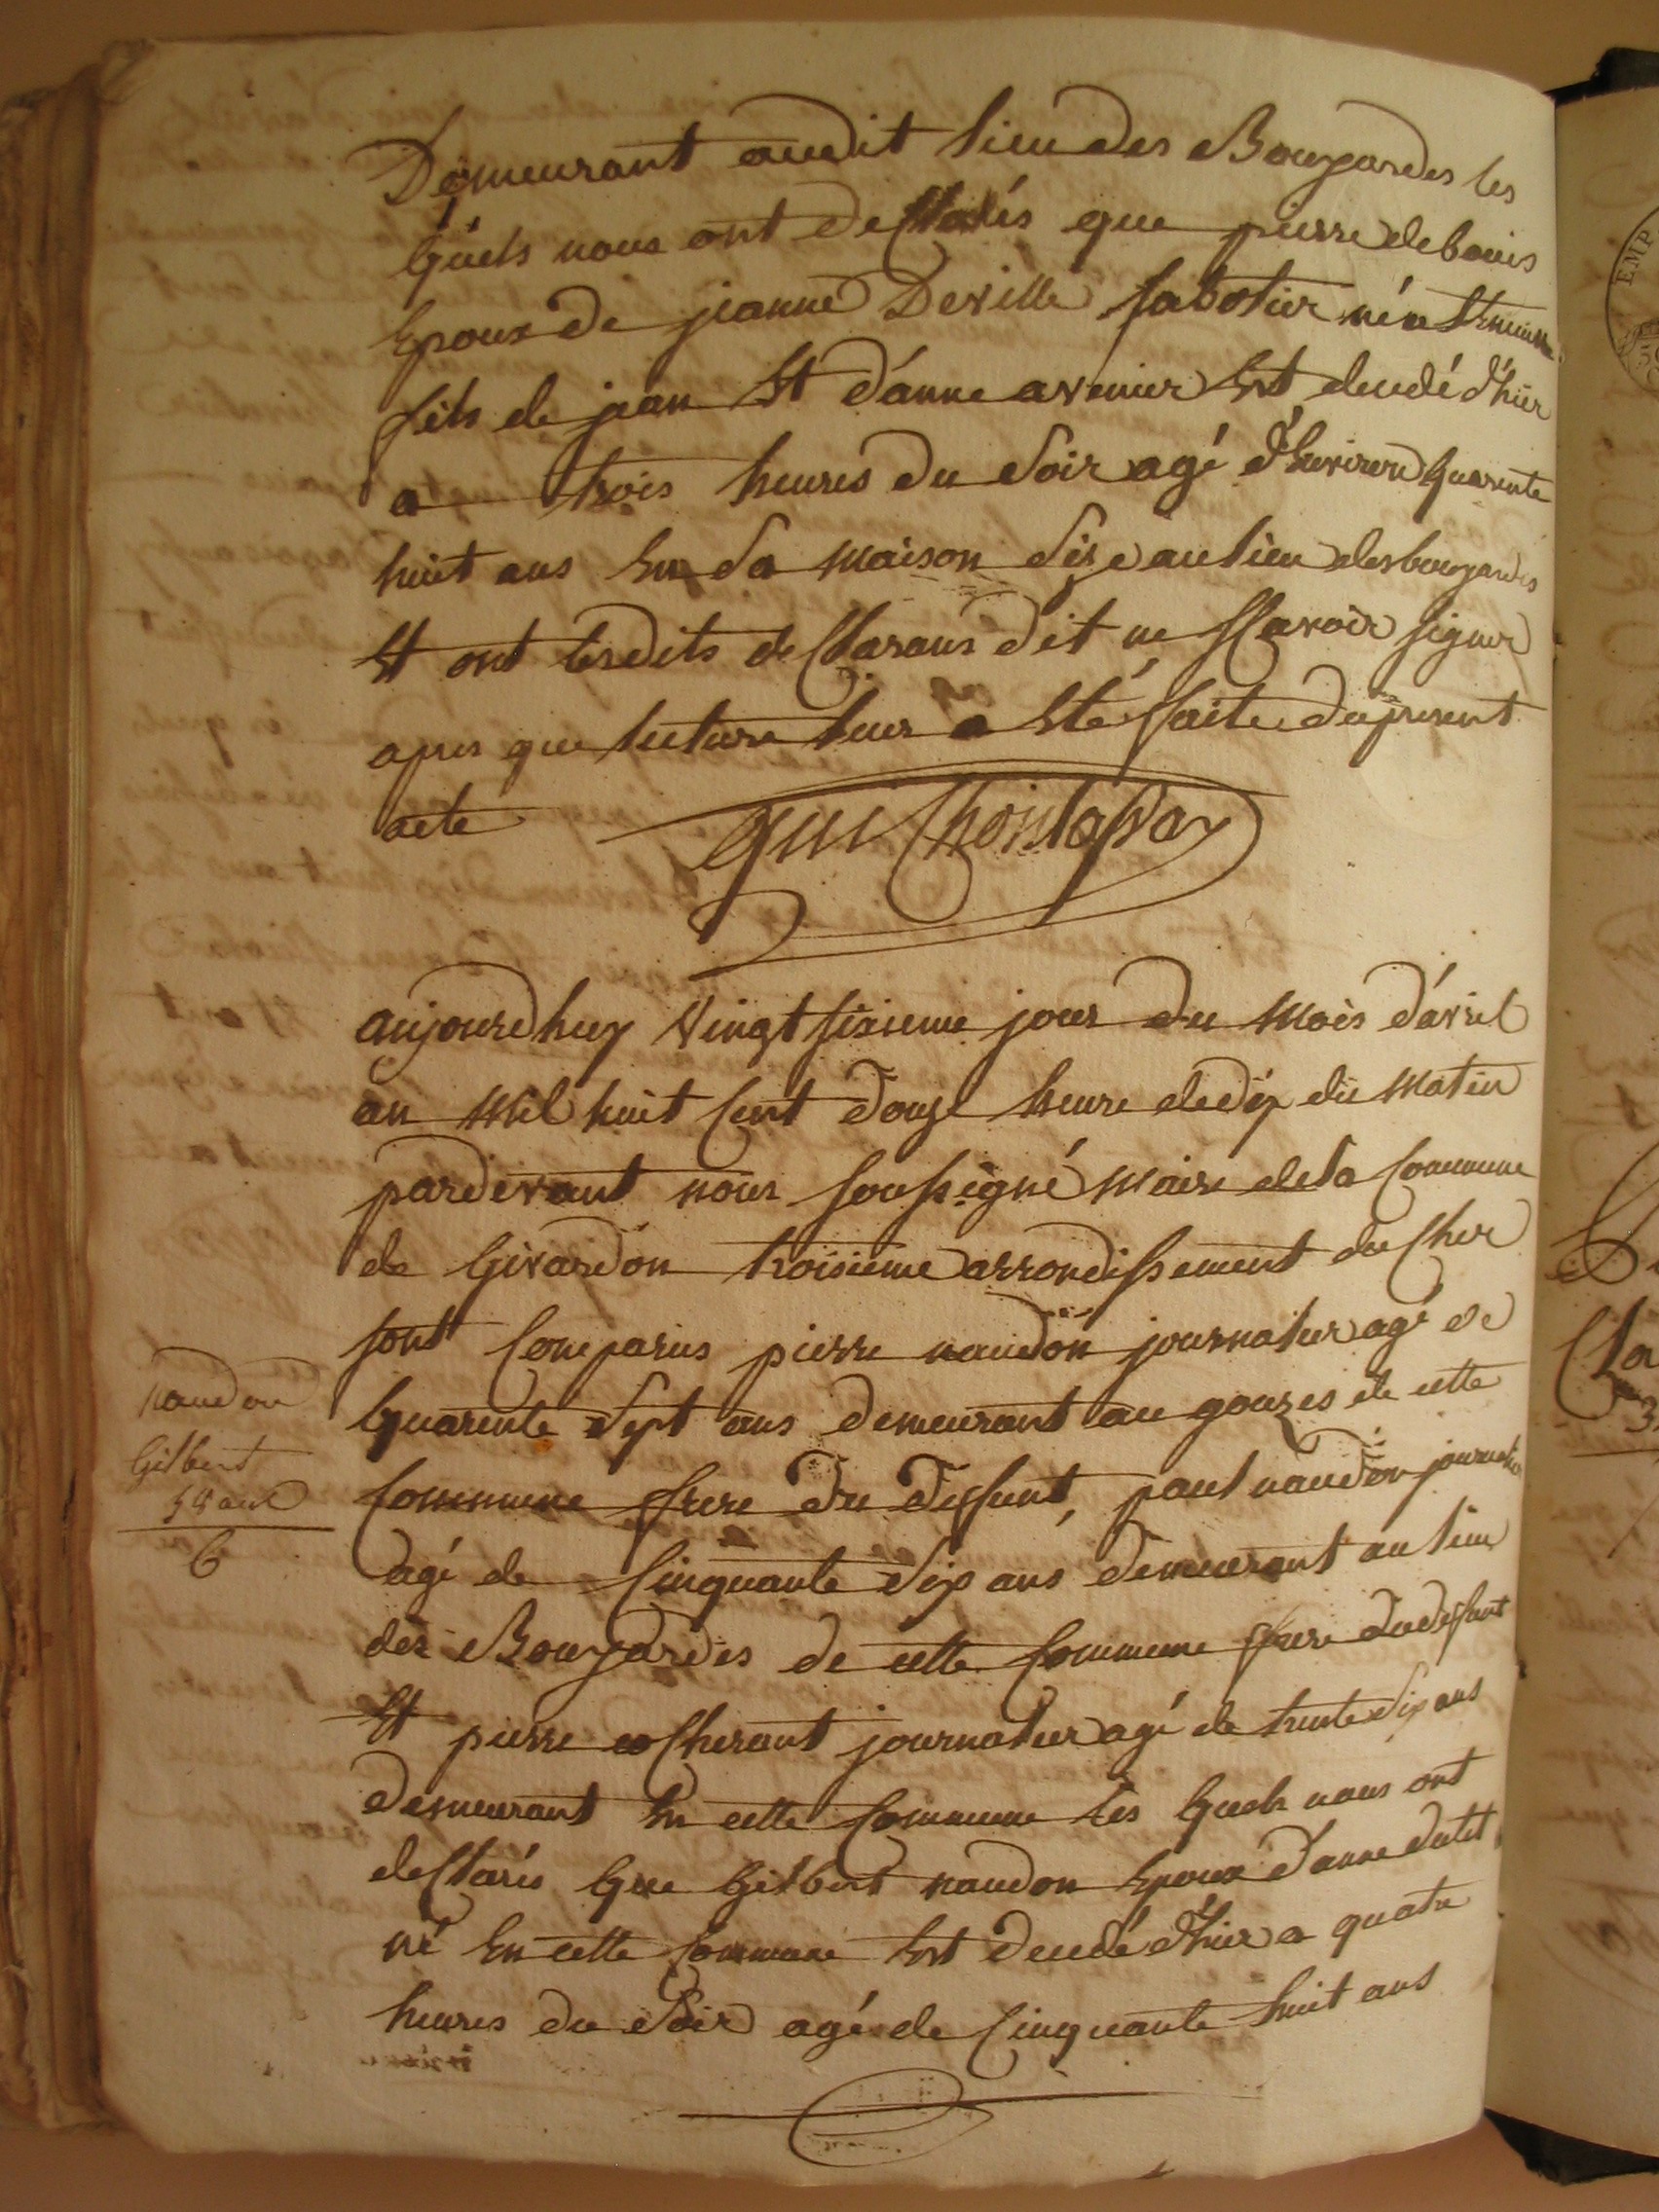 Demeurant audit lieu des Bougardes les
quels nous ont desclarés que pierre debouis
Epoux de jeanne Deville sabotier né a
fils de jean Et d'anne avenier Est decedé d'hier
a trois heures du soir agé d'Environ quarente
huit ans En sa maison size au lieu des bougardes
Et ont lesdits desclarans dit ne sçavoir signer
apres que lecture leur a Eté faite du present
acte
aujourdhuy vingt sixieme jour du mois d'avril
an mil huit cent douze heure de dix du matin
pardevant nous soussigné maire de la commune
de Givardon troisieme arrondissement du cher
sont comparus pierre naudon journalier agé de
quarente sept ans demeurant au gouzes de cette
commune frere du deffunt, paul naudon journalier
agé de cinquante six ans demeurant au lieu
des Bougardes de cette commune frere du deffunt
Et pierre cocherant journalier agé de trente six ans
demeurant En cette commune les quels nous ont
desclarés que Gilbert naudon Epoux d'anne
né En cette commune Est decedé d'hier a quatre
heures du soir agé de cinquante huit ans
naudon
Gilbert
58 ans
6
EMP